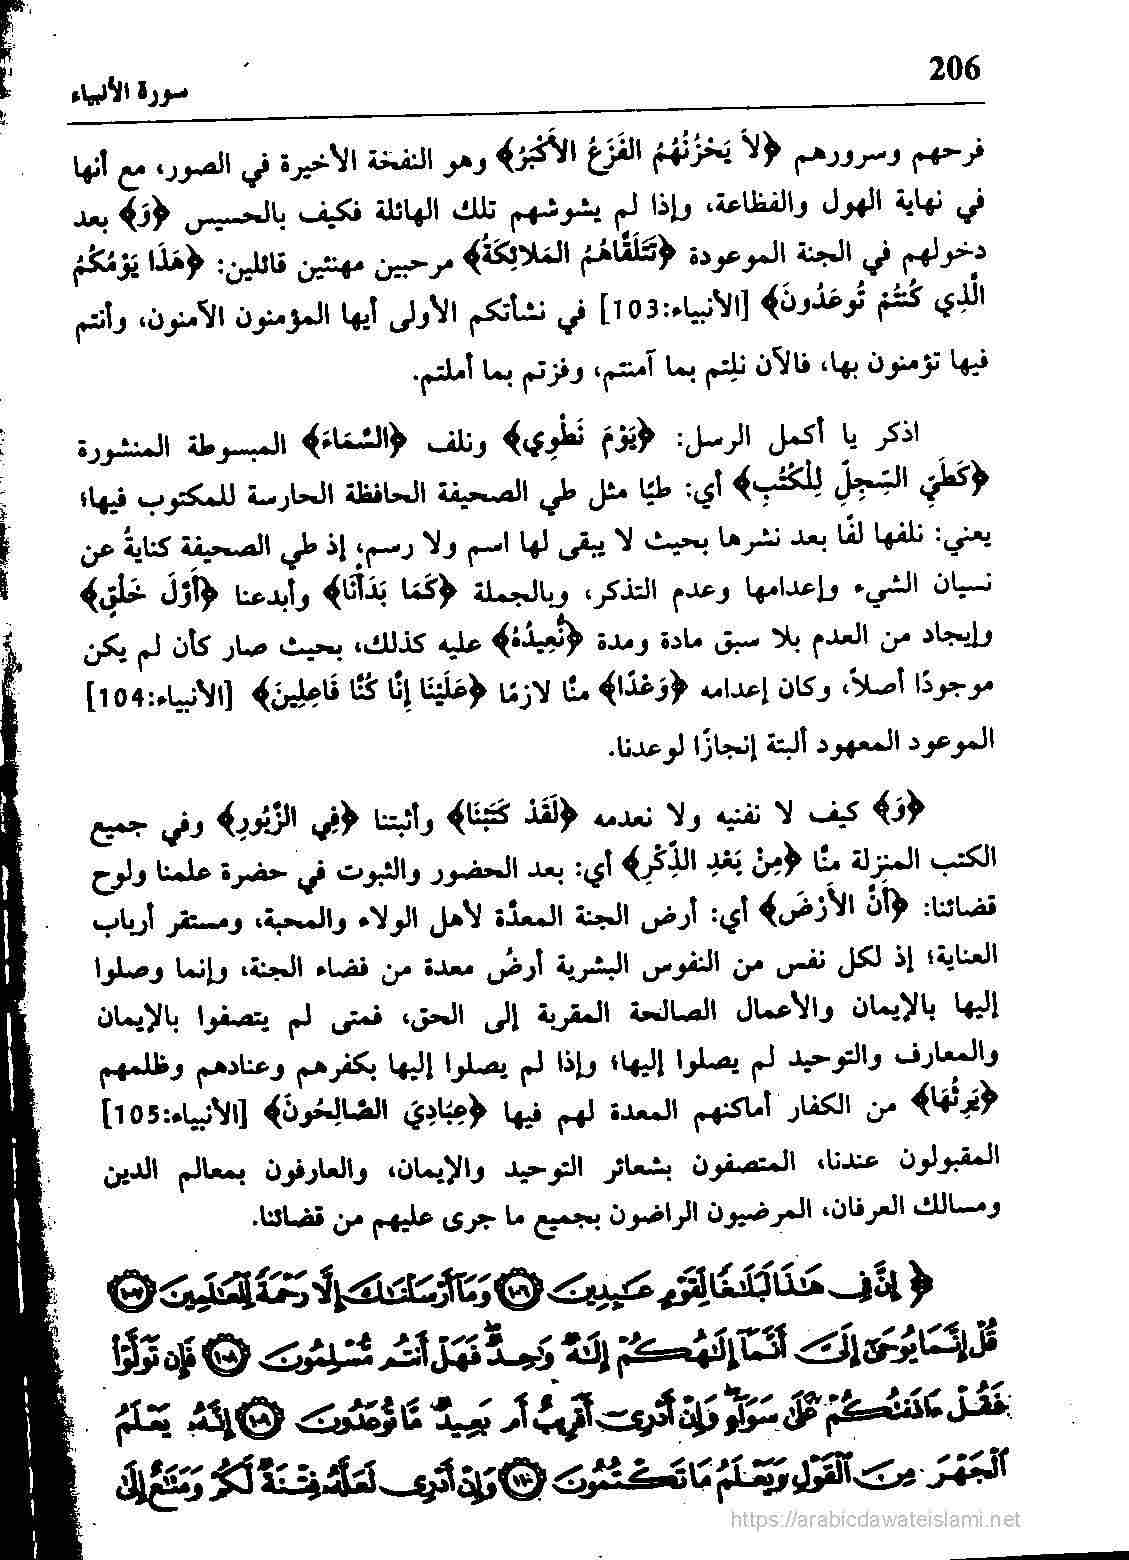 206
سورة الأنبياء
فرحهم وسرورهم ﴿لاَ يَحْزُنُهُمُ الفَزَعُ الأَكْبَرُ﴾ وهو النفخة الأخيرة في الصور، مع أنها
في نهاية الهول والفظاعة، وإذا لم يشوشهم تلك الهائلة فكيف بالحسيس ﴿وَ﴾ بعد
دخولهم في الجنة الموعودة ﴿تَتَلَقَّاهُمُ المَلائِكَةُ﴾ مرحبين مهنئين قائلين: ﴿هَذَا يَوْمُكُمُ
الَّذِي كُنتُمْ تُوعَدُونَ﴾ [الأنبياء:103] في نشأتكم الأولى أيها المؤمنون الآمنون، وأنتم
فيها تؤمنون بها، فالآن نلِتم بما آمنتم، وفزتم بما أملتم.
اذكر يا أكمل الرسل: ﴿يَوْمَ نَطْوِي﴾ ونلف ﴿السَّمَاءَ﴾ المبسوطة المنشورة
﴿كَطَيِّ السِّجِلِّ لِلْكُتُبِ﴾ أي: طيًا مثل طي الصحيفة الحافظة الحارسة للمكتوب فيها؛
يعني: نلفها لفًا بعد نشرها بحيث لا يبقى لها اسم ولا رسم، إذ طي الصحيفة كنايةُ عن
نسيان الشيء وإعدامها وعدم التذكر، وبالجملة ﴿كَمَا بَدَأْنَا﴾ وأبدعنا ﴿أَوَّلَ خَلْقٍ﴾
وإيجاد من العدم بلا سبق مادة ومدة ﴿نُّعِيدُهُ﴾ عليه كذلك، بحيث صار كأن لم يكن
موجودًا أصلاً، وكان إعدامه ﴿وَعْدًا﴾ منَّا لازمًا ﴿عَلَيْنَا إِنَّا كُنَّا فَاعِلِينَ﴾ [الأنبياء:104]
الموعود المعهود ألبتة إنجازًا لوعدنا.
﴿وَ﴾ كيف لا نفنيه ولا نعدمه ﴿لَقَدْ كَتَبْنَا﴾ وأثبتنا ﴿فِي الزَّبُورِ﴾ وفي جميع
الكتب المنزلة منَّا ﴿مِنْ بَعْدِ الذِّكْرِ﴾ أي: بعد الحضور والثبوت في حضرة علمنا ولوح
قضائنا: ﴿أَنَّ الأَرْضَ﴾ أي: أرض الجنة المعدَّة لأهل الولاء والمحبة، ومستقر أرباب
العناية؛ إذ لكل نفس من النفوس البشرية أرضُ معدة من فضاء الجنة، وإنما وصلوا
إليها بالإيمان والأعمال الصالحة المقربة إلى الحق، فمتى لم يتصفوا بالإيمان
والمعارف والتوحيد لم يصلوا إليها؛ وإذا لم يصلوا إليها بكفرهم وعنادهم وظلمهم
﴿يَرِثُهَا﴾ من الكفار أماكنهم المعدة لهم فيها ﴿عِبَادِيَ الصَّالِحُونَ﴾ [الأنبياء:105]
المقبولون عندنا، المتصفون بشعائر التوحيد والإيمان، والعارفون بمعالم الدين
ومسالك العرفان، المرضيون الراضون بجميع ما جرى عليهم من قضائنا.
﴿ إِنَّ فِي هَـٰذَا لَبَلَـٰغًا لِّقَوْمٍ عَـٰبِدِينَ ١٠٦ وَمَآ أَرْسَلْنَـٰكَ إِلَّا رَحْمَةً لِّلْعَـٰلَمِينَ ١٠٧
قُلْ إِنَّمَا يُوحَىٰٓ إِلَىَّ أَنَّمَآ إِلَـٰهُكُمْ إِلَـٰهٌ وَٰحِدٌ ۖ فَهَلْ أَنتُم مُّسْلِمُونَ ١٠٨ فَإِن تَوَلَّوْا۟
فَقُلْ ءَاذَنتُكُمْ عَلَىٰ سَوَآءٍ ۖ وَإِنْ أَدْرِىٓ أَقَرِيبٌ أَم بَعِيدٌ مَّا تُوعَدُونَ ١٠٩ إِنَّهُۥ يَعْلَمُ
ٱلْجَهْرَ مِنَ ٱلْقَوْلِ وَيَعْلَمُ مَا تَكْتُمُونَ ١١٠ وَإِنْ أَدْرِى لَعَلَّهُۥ فِتْنَةٌ لَّكُمْ وَمَتَـٰعٌ إِلَىٰ
https://arabicdawateislami.net